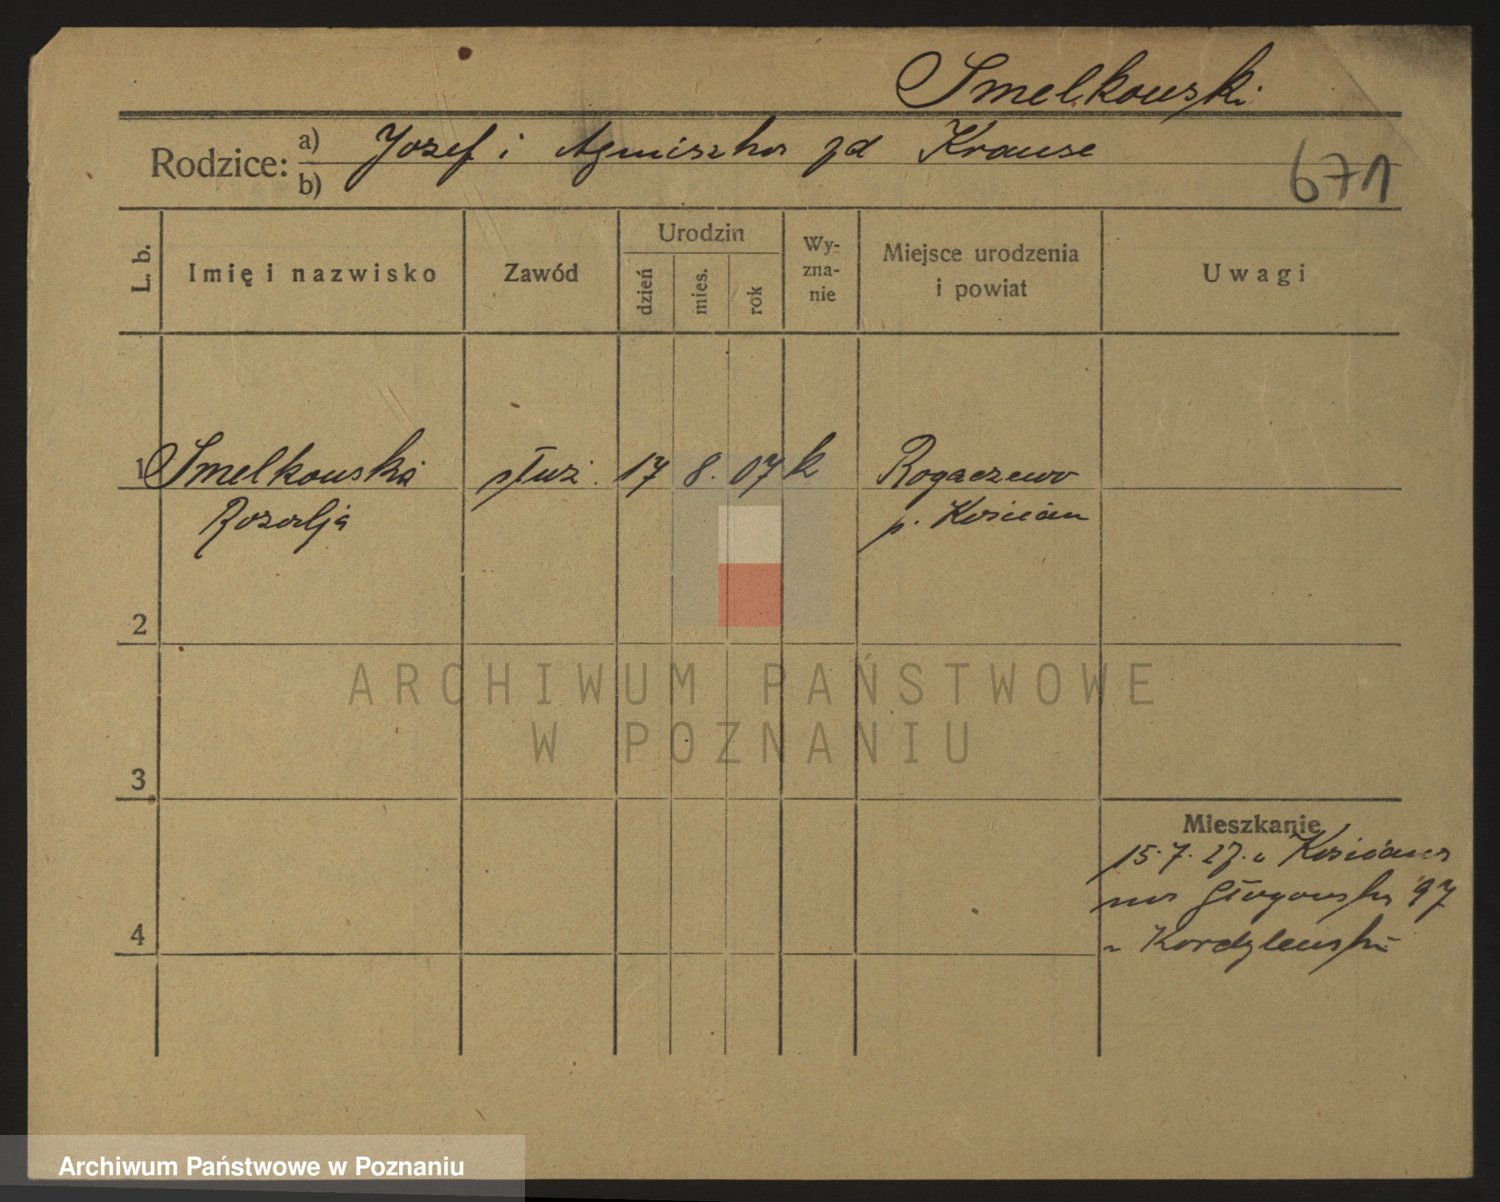 Smelkowski
Rodzice: a) Józef i Agnieszka zd Krause
b)
671
L. b.
Imię i nazwisko
Zawód
Urodzin
dzień
mies.
rok
Wy-
zna-
nie
Miejsce urodzenia
i powiat
Uwagi
1 Smelkowska służ. 17 8. 07 k Rogaczewo
Rozalja p. Kościan
2
ARCHIWUM PAŃSTWOWE
W POZNANIU
3
Mieszkanie
15.7.27. z Kościana
na Głogowska 97
4
u Kordylewski
Archiwum Państwowe w Poznaniu